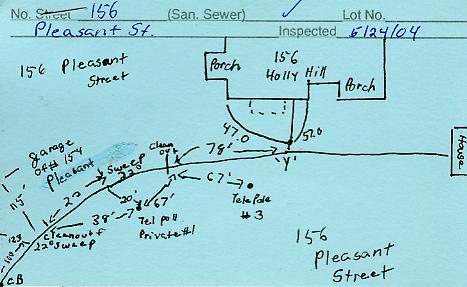 No. Street 156 (San. Sewer) Lot No.
Pleasant St. Inspected 5/24/04
156 Pleasant
Street
Porch
156
Holly Hill
Porch
House
Garage
Off # 154
Pleasant
Sweep
22°
Clean
out
78'
47.0
52.0
"Y"
115'
22'
20'
67'
67'
Tele Pole
# 3
38'
Tel pole
Private #1
Cleanout &
22° Sweep
123
100
CB
156
Pleasant
Street